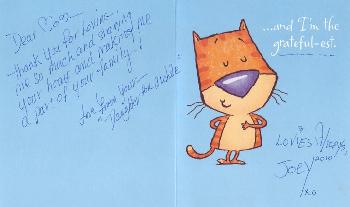 Dear Mom,
Thank You for Loving
me so much and sharing
your heart and making me
a part of your family..!
Love from your
"Daughter
...and I'm the
grateful-est.
Love's Always,
2010
JOEY
xo